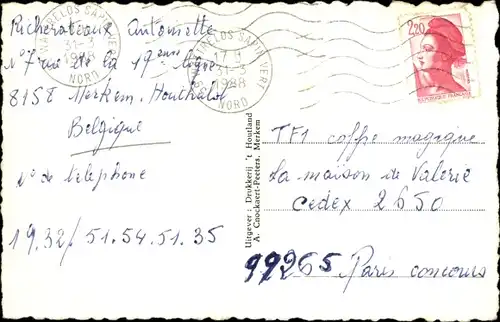 Richerateaux Antoinette
N°7 rue de la 17eme ligne
8158 Merkem. Houthulst
Belgique
N° de telephone
19.32/51.54.51.35
WATTRELOS SAPIN VERT
31-3
NORD
59 WATTRELOS SAPIN VERT
17 H
31-3
1988
NORD
2,20
REPUBLIQUE FRANÇAISE
Uitgever: Drukkerij 't Houtland
A. Cnockaert-Peeters, Merkem
TF1 coffre magique
La maison de Valerie
Cedex 2650
99265 Paris concours